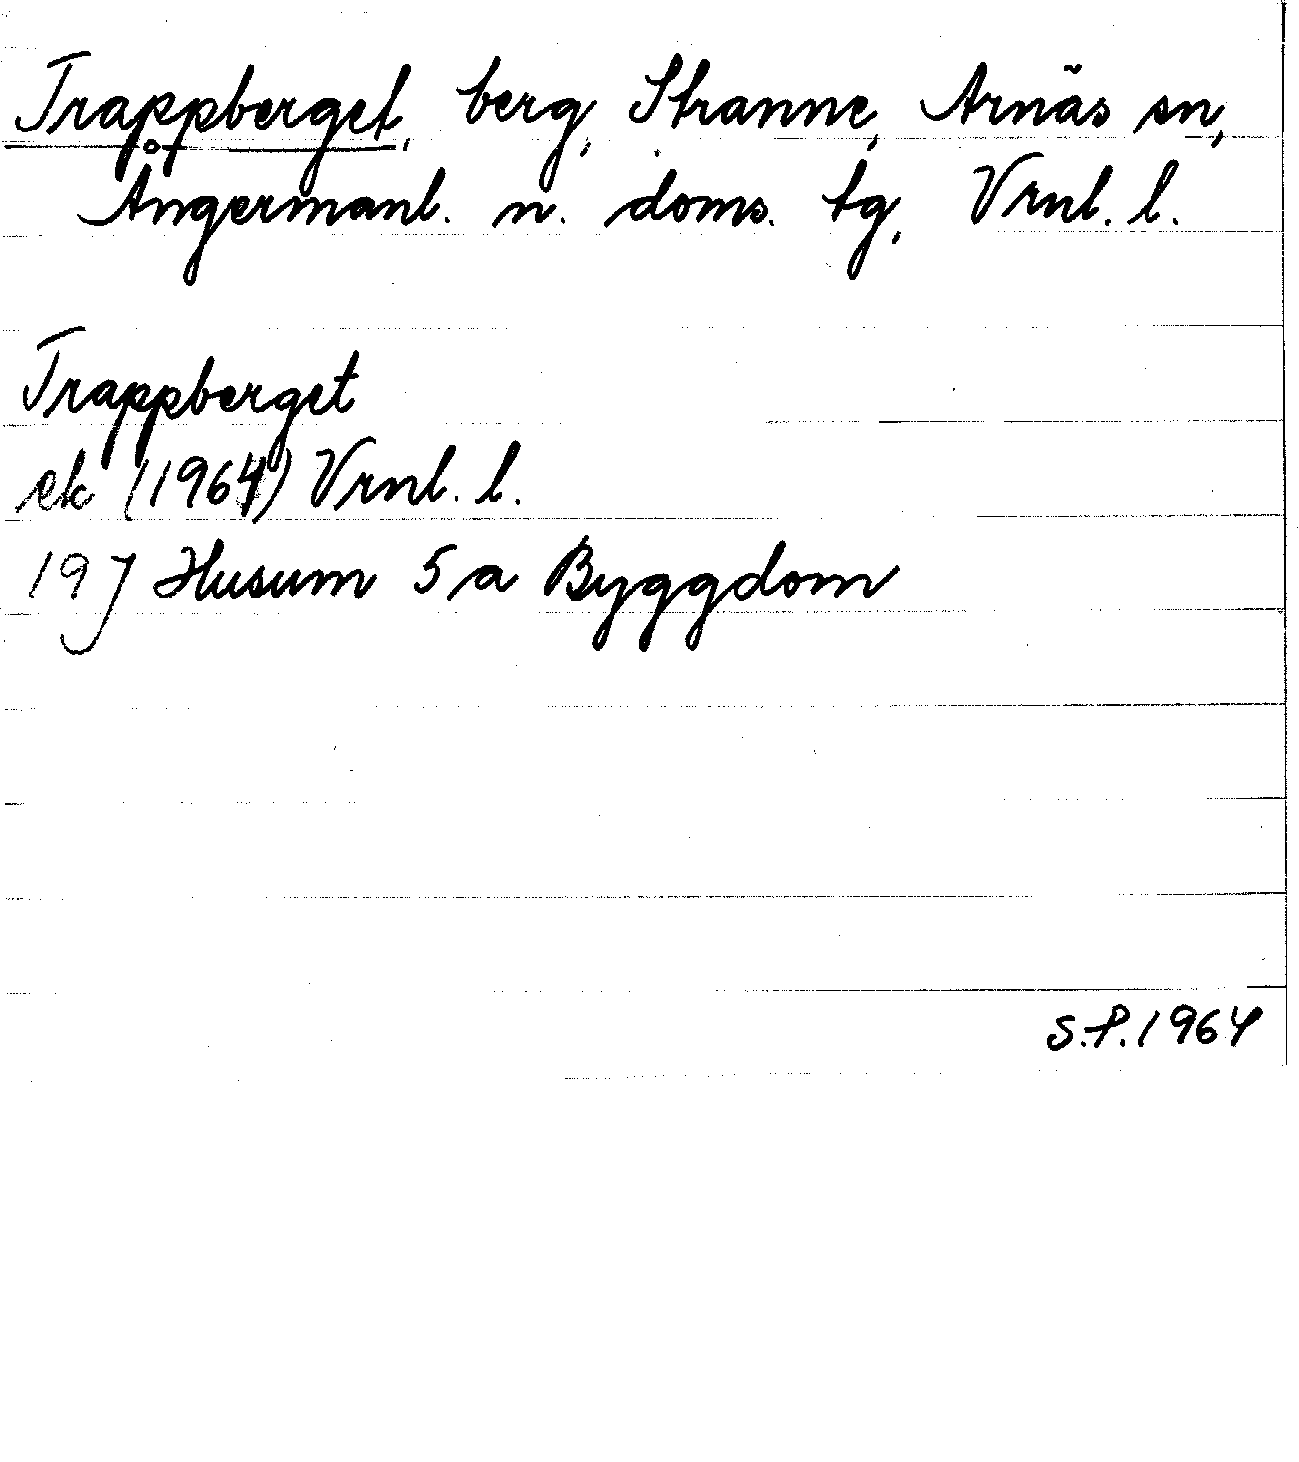 Trappberget, berg, Stranne, Arnäs sn,
Ångermanl. n. doms. tg, Vrnl. l.
Trappberget
ek (1964) Vrnl. l.
19J Husum 5 a Byggdom
S.P. 1964